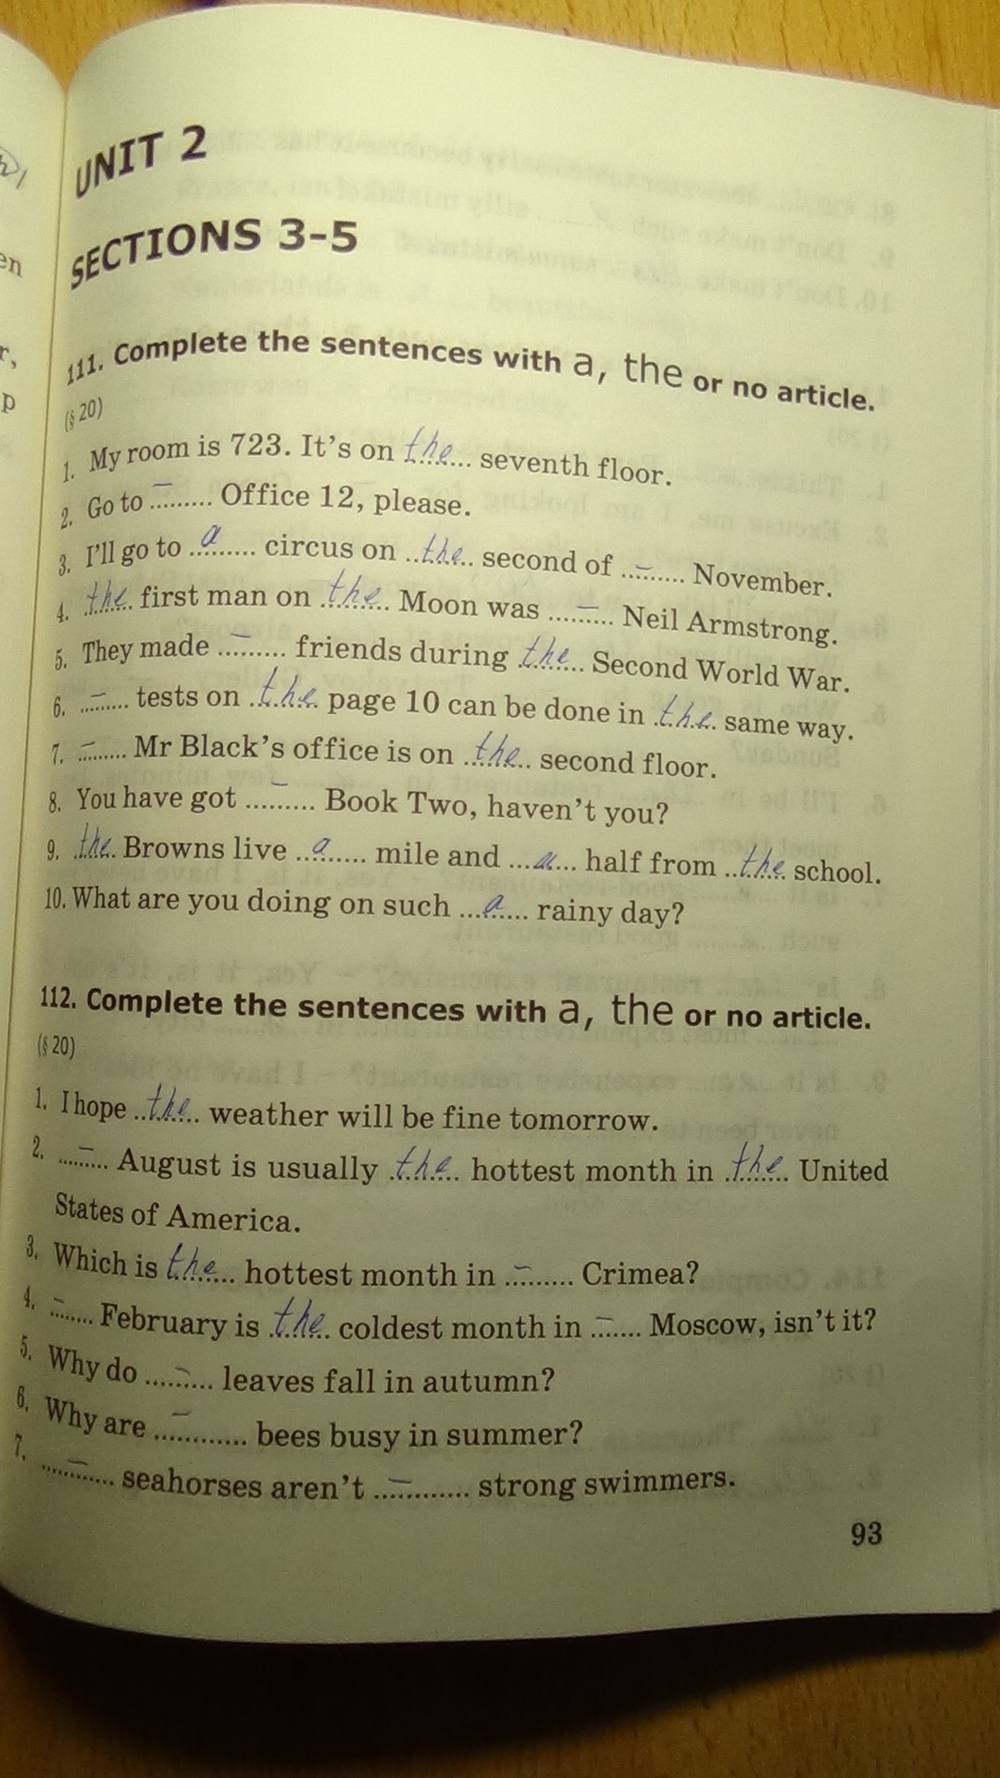 UNIT 2
SECTIONS 3-5
111. Complete the sentences with a, the or no article.
(§ 20)
1. My room is 723. It's on ..the... seventh floor.
2. Go to ....–.... Office 12, please.
3. I'll go to ...a..... circus on ..the.. second of ...–..... November.
4. .the. first man on .the.. Moon was ....–.... Neil Armstrong.
5. They made ...–..... friends during .the.. Second World War.
6. ...–.... tests on .the. page 10 can be done in .the. same way.
7. ..–..... Mr Black's office is on .the.. second floor.
8. You have got ....–.... Book Two, haven't you?
9. .the. Browns live ..a..... mile and ...a... half from ..the. school.
10. What are you doing on such ...a.... rainy day?
112. Complete the sentences with a, the or no article.
(§ 20)
1. I hope ..the.. weather will be fine tomorrow.
2. ....–... August is usually .the.. hottest month in .the.. United
States of America.
3. Which is .the... hottest month in ..–..... Crimea?
4. ..–.... February is .the.. coldest month in ..–.... Moscow, isn't it?
5. Why do ....–.... leaves fall in autumn?
6. Why are ....–........ bees busy in summer?
7. .....–..... seahorses aren't ...–........ strong swimmers.
93